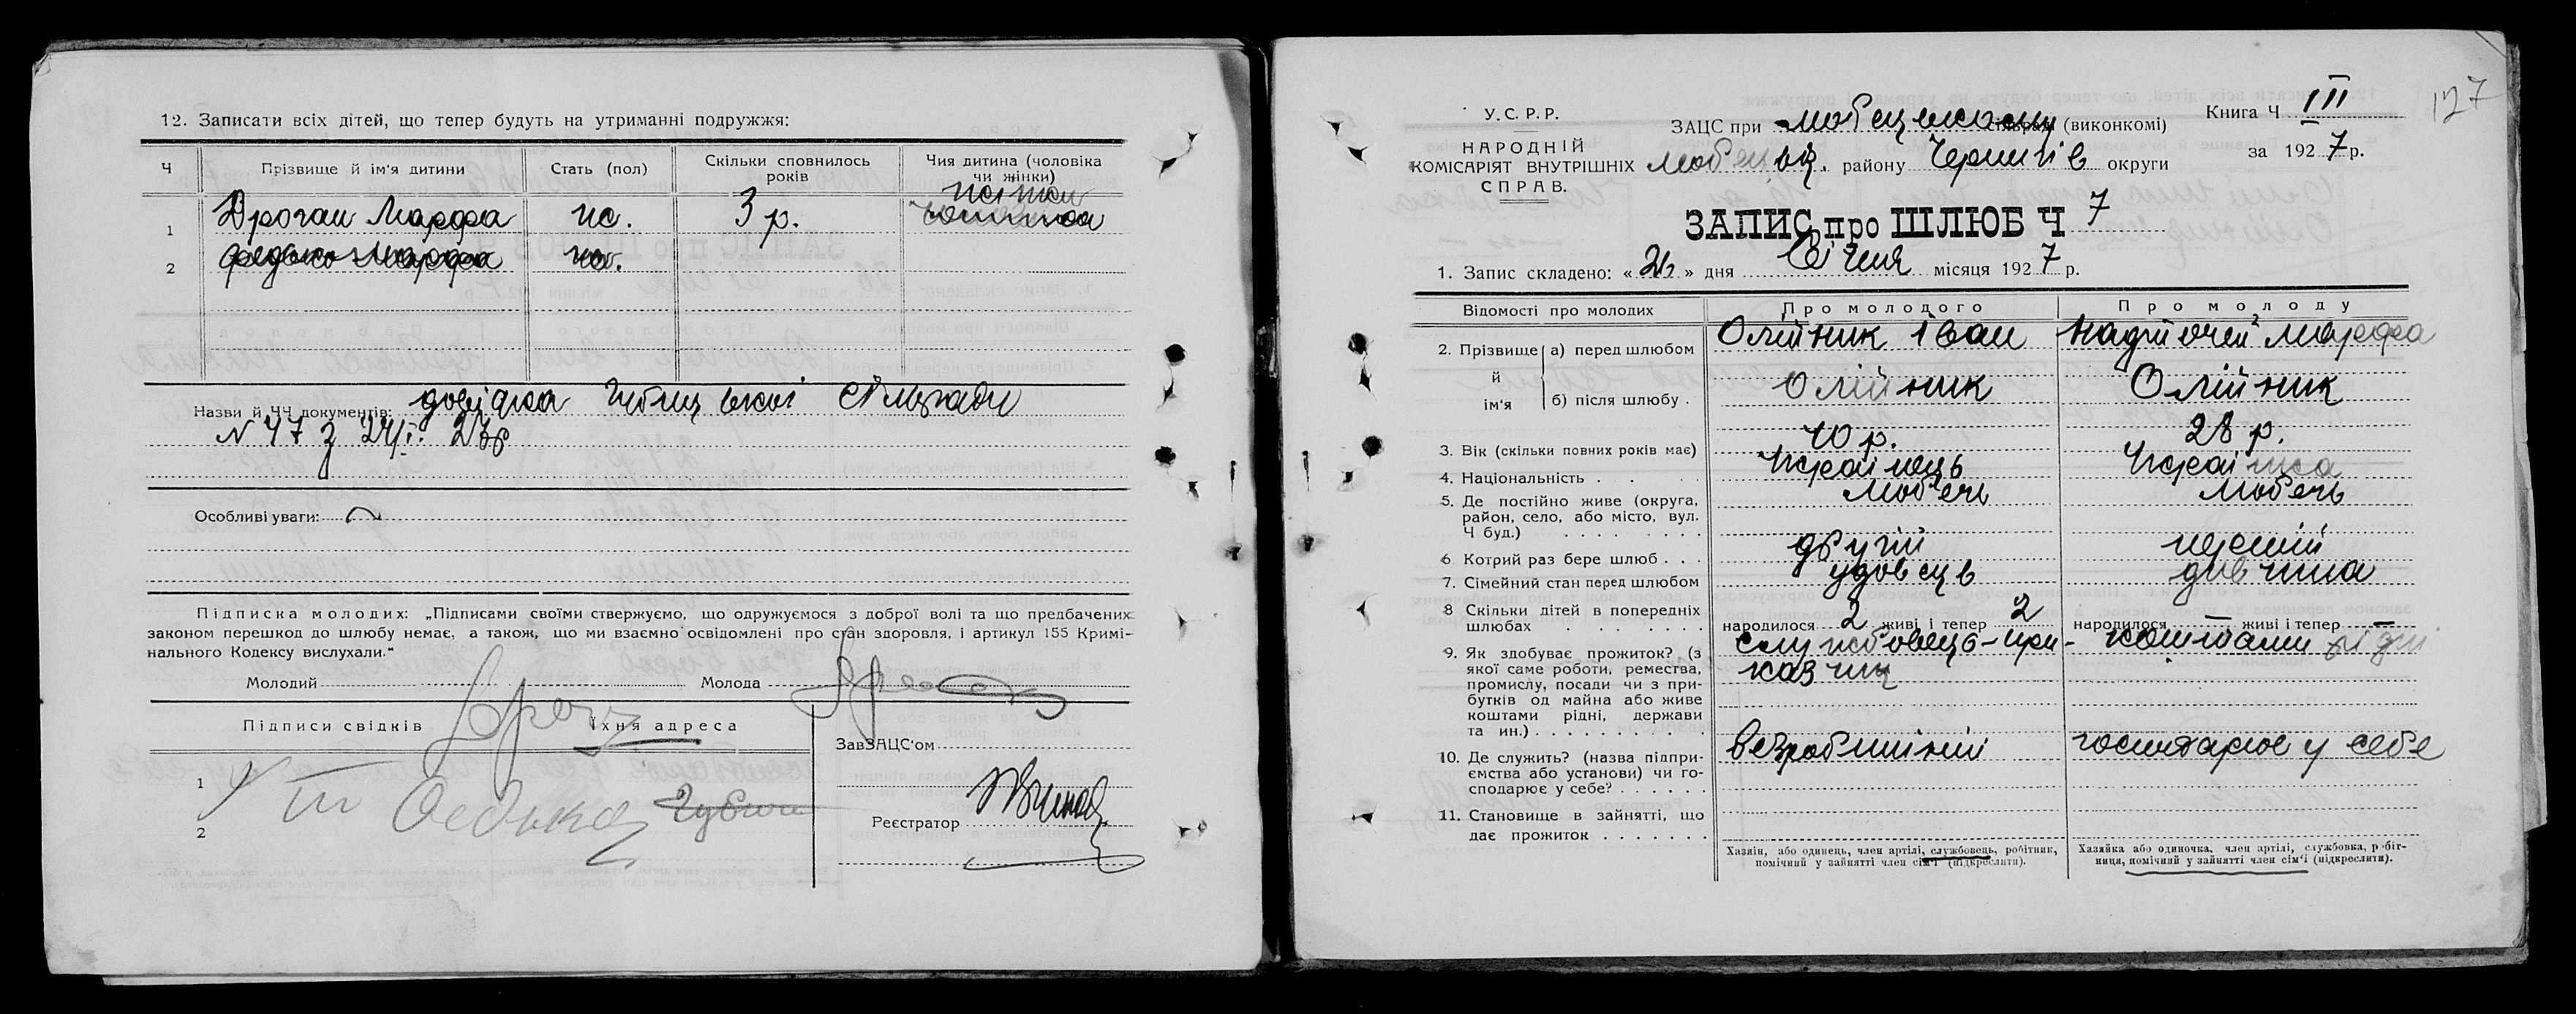 12. Записати всіх дітей, що тепер будуть на утриманні подружжя:
Ч
Прізвище й ім'я дитини
Стать (пол)
Скільки сповнилось років
Чия дитина (чоловіка чи жінки)
1 Дроган Марфа ж. 3 р.
2 Федько Марфа ж.
Назви й ЧЧ документів: довідка сільради
N 47 з
Особливі уваги:
Підписка молодих: „Підписами своїми стверджуємо, що одружуємося з доброї волі та що предбачених
законом перешкод до шлюбу немає, а також, що ми взаємно освідомлені про стан здоровля, і артикул 155 Кримі-
нального Кодексу вислухали."
Молодий
Молода
Підписи свідків
Їхня адреса
ЗавЗАЦС'ом
1
2
Реєстратор
127
У.С.Р.Р.
НАРОДНІЙ
КОМІСАРІЯТ ВНУТРІШНІХ
СПРАВ.
ЗАЦС при Любецькому (виконкомі)
Любецьк. району Чернігів округи
Книга Ч III
за 1927 р.
ЗАПИС про ШЛЮБ Ч 7
1. Запис складено: « 26 » дня Січня місяця 1927 р.
Відомості про молодих
Про молодого
Про молоду
2. Прізвище й ім'я
а) перед шлюбом Олійник Іван Марфа
б) після шлюбу . Олійник Олійник
3. Вік (скільки повних років має) 40 р. 28 р.
4. Національність . . . Українець Українка
5. Де постійно живе (округа, Любечь Любечь
район, село, або місто, вул.
Ч буд.) . . . .
6 Котрий раз бере шлюб . . . другий перший
7. Сімейний стан перед шлюбом удовець дивчина
8 Скільки дітей в попередніх
шлюбах . . . . . . народилося 2 живі і тепер 2 народилося — живі і тепер —
9. Як здобуває прожиток? (з службовець-при- коштами рідні
якої саме роботи, ремества, казчик
промислу, посади чи з при-
бутків од майна або живе
коштами рідні, держави
та ин.) . . . . . . . . . .
10. Де служить? (назва підпри- безробітній господарює у себе
ємства або установи) чи го-
сподарює у себе? . . . . . .
11. Становище в зайнятті, що
дає прожиток . . . . . . .
Хазяїн, або одинець, член артілі, службовець, робітник,
помічний у зайнятті член сім'ї (підкреслити).
Хазяйка або одиночка, член артілі, службовка, робіт-
ниця, помічний у зайнятті член сім'ї (підкреслити).